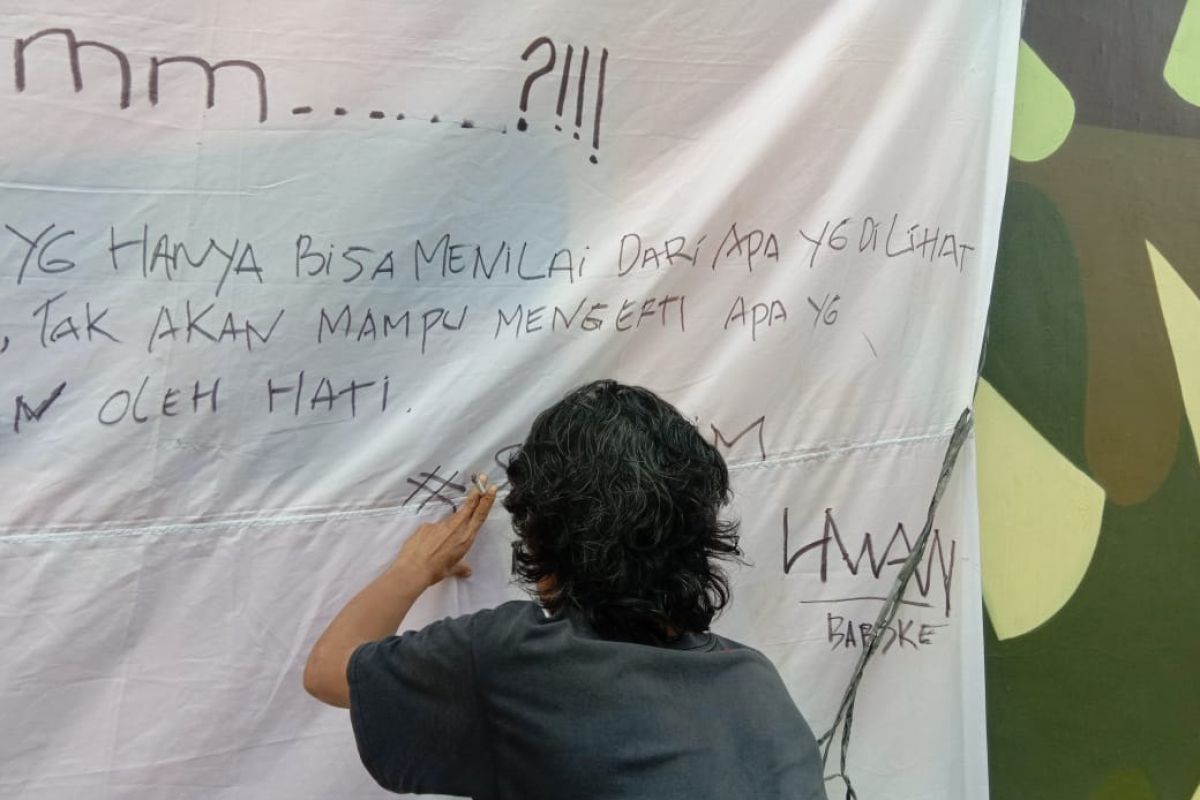 mm..........?!!!
YG HANYA BISA MENILAI DARI APA YG DILIHAT
, TAK AKAN MAMPU MENGERTI APA YG
N OLEH HATI.
#
IWAN